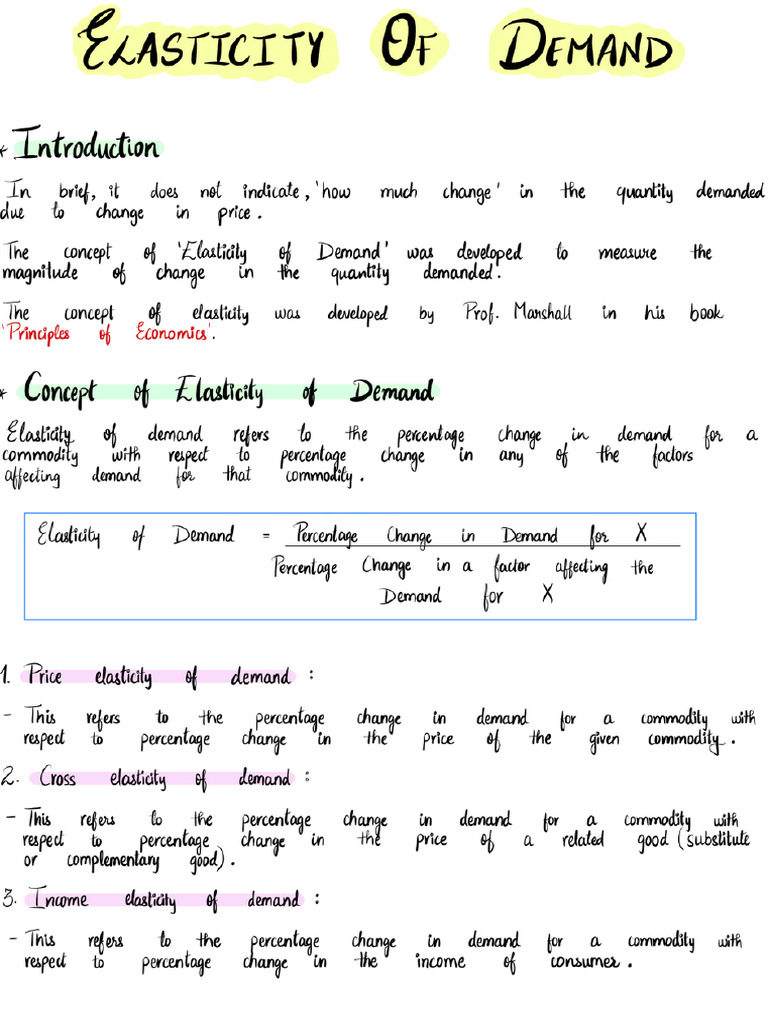 ELASTICITY OF DEMAND
* Introduction
In brief, it does not indicate, 'how much change' in the quantity demanded
due to change in price.
The concept of 'Elasticity of Demand' was developed to measure the
magnitude of change in the quantity demanded'.
The concept of elasticity was developed by Prof. Marshall in his book
'Principles of Economics'.
* Concept of Elasticity of Demand
Elasticity of demand refers to the percentage change in demand for a
commodity with respect to percentage change in any of the factors
affecting demand for that commodity.
Elasticity of Demand = Percentage Change in Demand for X
Percentage Change in a factor affecting the
Demand for X
1. Price elasticity of demand :
- This refers to the percentage change in demand for a commodity with
respect to percentage change in the price of the given commodity.
2. Cross elasticity of demand :
- This refers to the percentage change in demand for a commodity with
respect to percentage change in the price of a related good (substitute
or complementary good).
3. Income elasticity of demand :
- This refers to the percentage change in demand for a commodity with
respect to percentage change in the income of consumer.